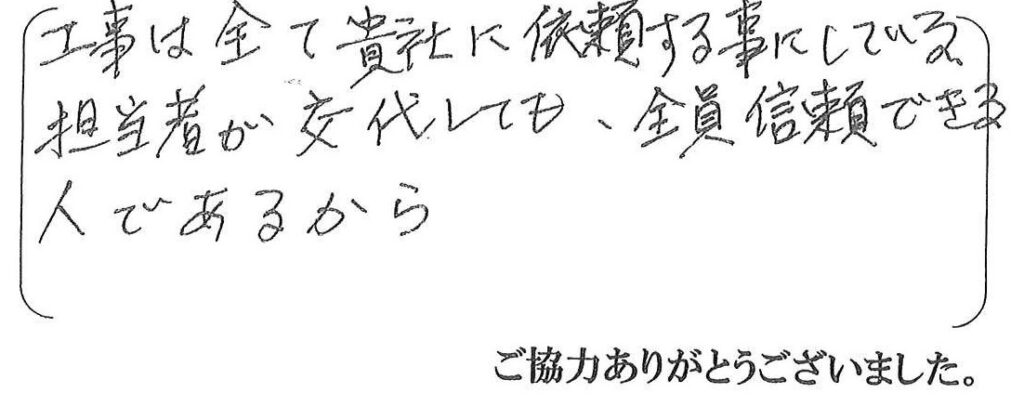 工事は全て貴社に依頼する事にしている。
担当者が交代しても、全員信頼できる
人であるから
ご協力ありがとうございました。